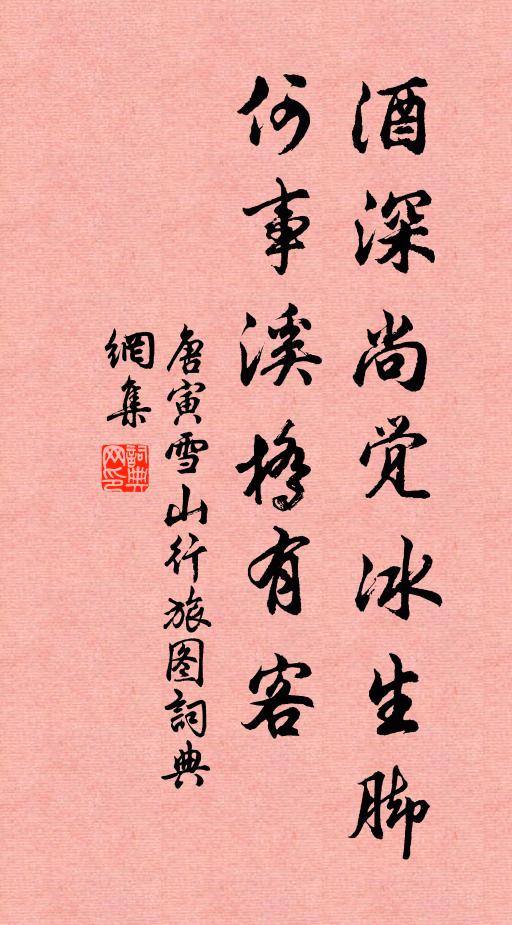 酒深尚觉冰生脚
何事溪橋有客
唐寅雪山行旅图詞典
網集
詞典網印